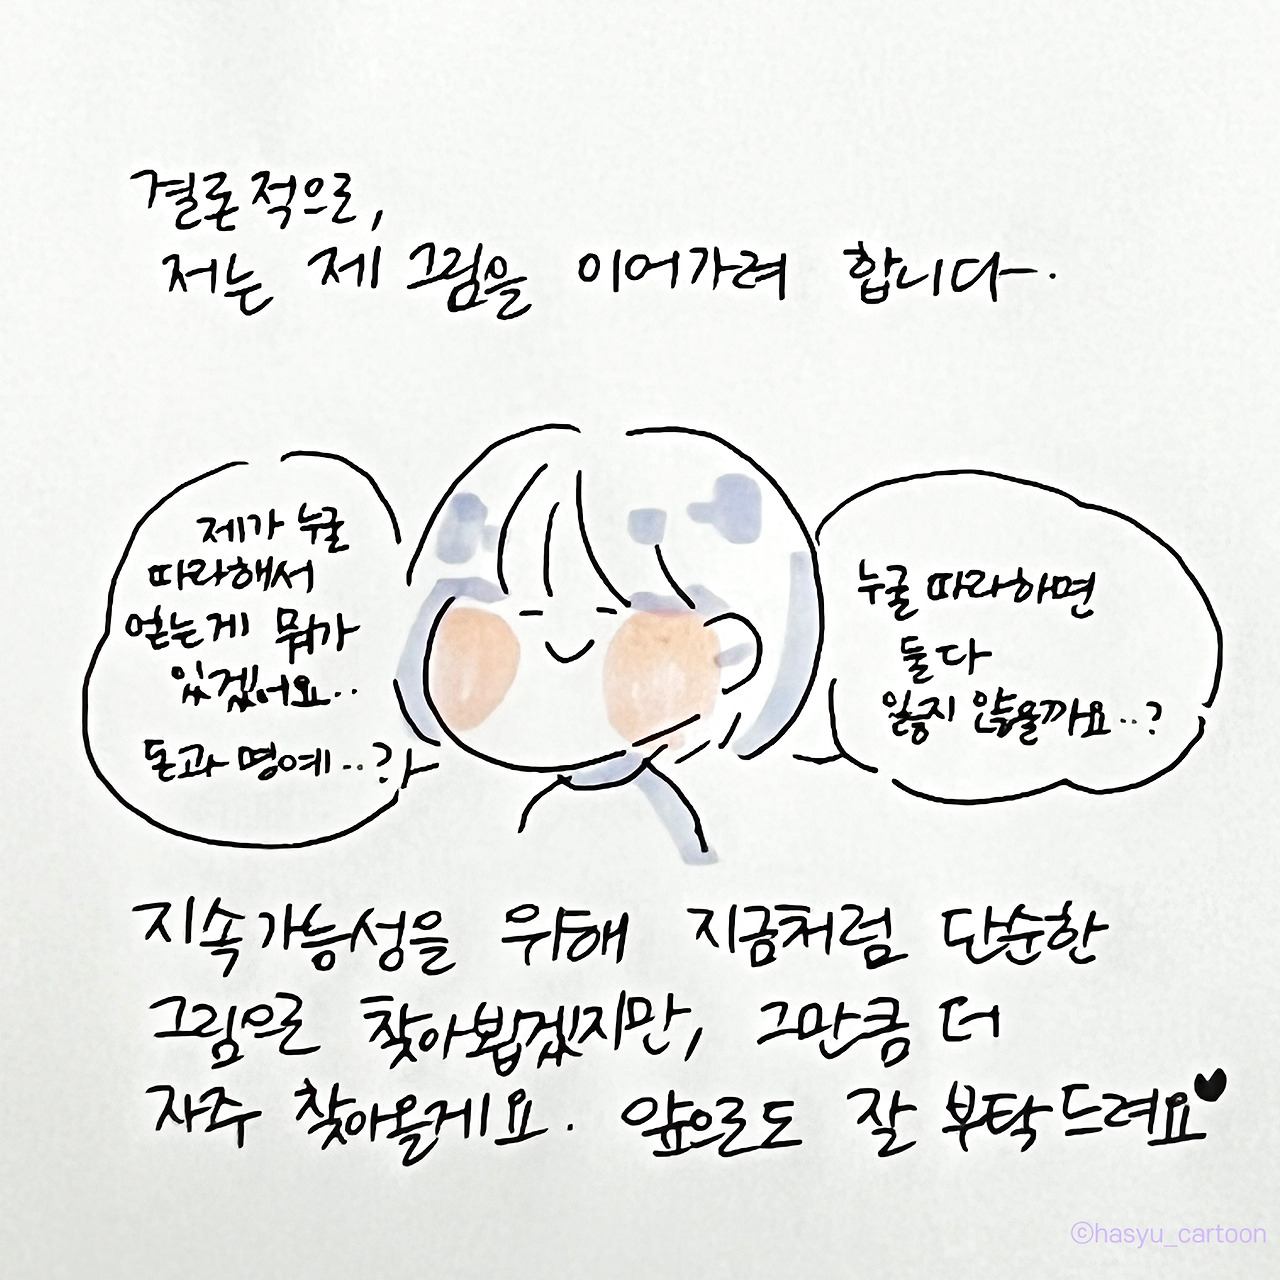 결론적으로,
저는 제 그림을 이어가려 합니다.
제가 누굴
따라해서
얻는게 뭐가
있겠어요..
돈과 명예..?
누굴 따라하면
둘다
잃지 않을까요..?
지속가능성을 위해 지금처럼 단순한
그림으로 찾아뵙겠지만, 그만큼 더
자주 찾아올게요. 앞으로도 잘 부탁드려요♥
©hasyu_cartoon